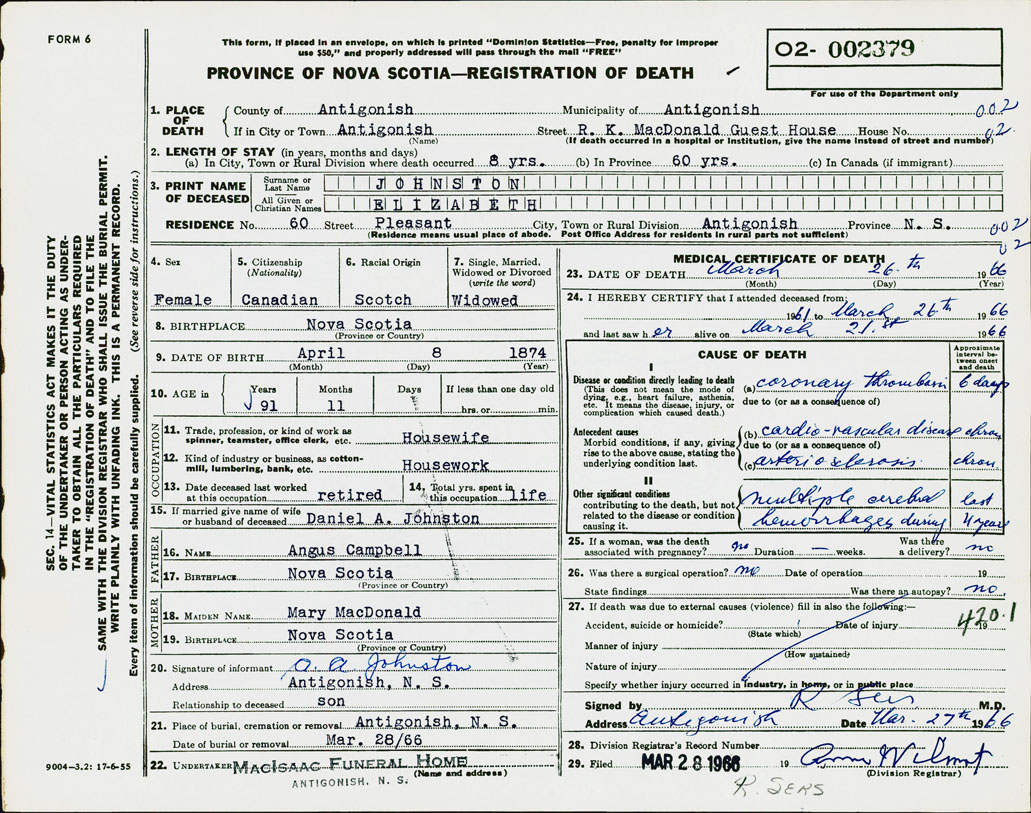 FORM 6
This form, if placed in an envelope, on which is printed "Dominion Statistics—Free, penalty for improper
use $50," and properly addressed will pass through the mail "FREE"
O2- 002379
PROVINCE OF NOVA SCOTIA—REGISTRATION OF DEATH
For use of the Department only
SEC. 14—VITAL STATISTICS ACT MAKES IT THE DUTY
OF THE UNDERTAKER OR PERSON ACTING AS UNDER-
TAKER TO OBTAIN ALL THE PARTICULARS REQUIRED
IN THE "REGISTRATION OF DEATH" AND TO FILE THE
SAME WITH THE DIVISION REGISTRAR WHO SHALL ISSUE THE BURIAL PERMIT.
WRITE PLAINLY WITH UNFADING INK. THIS IS A PERMANENT RECORD.
Every item of information should be carefully supplied. (See reverse side for instructions.)
1. PLACE OF DEATH
County of Antigonish Municipality of Antigonish 002
If in City or Town Antigonish Street R. K. MacDonald Guest House House No. 02
(Name) (If death occurred in a hospital or institution, give the name instead of street and number)
2. LENGTH OF STAY (in years, months and days)
(a) In City, Town or Rural Division where death occurred 8 yrs. (b) In Province 60 yrs. (c) In Canada (if immigrant)
3. PRINT NAME OF DECEASED
Surname or Last Name JOHNSTON
All Given or Christian Names ELIZABETH
RESIDENCE No. 60 Street Pleasant City, Town or Rural Division Antigonish Province N. S. 002
(Residence means usual place of abode. Post Office Address for residents in rural parts not sufficient) 02
4. Sex Female
5. Citizenship (Nationality) Canadian
6. Racial Origin Scotch
7. Single, Married, Widowed or Divorced (write the word) Widowed
8. BIRTHPLACE Nova Scotia
(Province or Country)
9. DATE OF BIRTH April 8 1874
(Month) (Day) (Year)
10. AGE in Years 91 Months 11 Days If less than one day old hrs. or min.
OCCUPATION
11. Trade, profession, or kind of work as spinner, teamster, office clerk, etc. Housewife
12. Kind of industry or business, as cotton-mill, lumbering, bank, etc. Housework
13. Date deceased last worked at this occupation retired
14. Total yrs. spent in this occupation life
15. If married give name of wife or husband of deceased Daniel A. Johnston
FATHER
16. NAME Angus Campbell
17. BIRTHPLACE Nova Scotia
(Province or Country)
MOTHER
18. MAIDEN NAME Mary MacDonald
19. BIRTHPLACE Nova Scotia
(Province or Country)
20. Signature of informant A. A. Johnston
Address Antigonish, N. S.
Relationship to deceased son
21. Place of burial, cremation or removal Antigonish, N. S.
Date of burial or removal Mar. 28/66
22. UNDERTAKER MACISAAC FUNERAL HOME
(Name and address)
ANTIGONISH, N. S.
9004—3.2: 17-6-55
MEDICAL CERTIFICATE OF DEATH
23. DATE OF DEATH March 26th 1966
(Month) (Day) (Year)
24. I HEREBY CERTIFY that I attended deceased from:
1961 to March 26th 1966
and last saw her alive on March 21.st 1966
CAUSE OF DEATH
Approximate interval between onset and death
I
Disease or condition directly leading to death
(This does not mean the mode of dying, e.g., heart failure, asthenia, etc. It means the disease, injury, or complication which caused death.)
(a) coronary thrombosis 6 days
due to (or as a consequence of)
Antecedent causes
Morbid conditions, if any, giving rise to the above cause, stating the underlying condition last.
(b) cardio-vascular disease chron
due to (or as a consequence of)
(c) arteriosclerosis. chron.
II
Other significant conditions
contributing to the death, but not related to the disease or condition causing it.
multiple cerebral last
hemorrhages during 4 years
25. If a woman, was the death associated with pregnancy? no Duration — weeks. Was there a delivery? no
26. Was there a surgical operation? no Date of operation 19
State findings Was there an autopsy? no.
27. If death was due to external causes (violence) fill in also the following:—
Accident, suicide or homicide? Date of injury 19
(State which)
420.1
Manner of injury
(How sustained)
Nature of injury
Specify whether injury occurred in industry, in home, or in public place
Signed by R Sers M.D.
Address Antigonish Date Mar. 27th 1966
28. Division Registrar's Record Number
29. Filed MAR 28 1966 19
(Division Registrar)
R. SERS